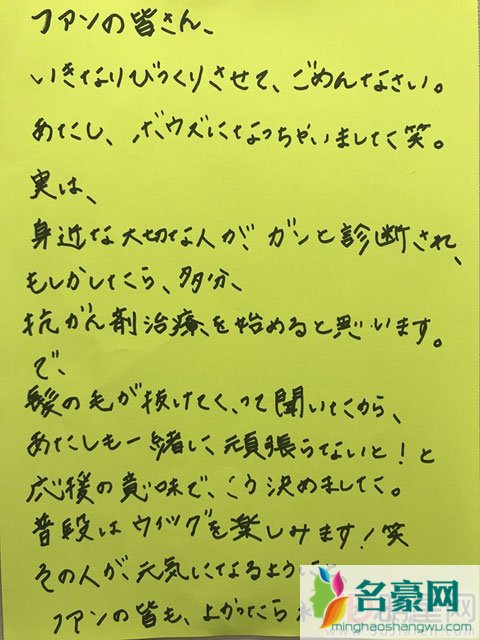 ファンの皆さん、
いきなりびっくりさせて、ごめんなさい。
あたし、ボウズになっちゃいました笑。
実は、
身近な大切な人が、ガンと診断され、
もしかしたら、多分、
抗がん剤治療を始めると思います。
で、
髪の毛が抜けてくって聞いたから、
あたしも一緒に頑張らないと！と
応援の意味で、こう決めました。
普段はウィッグを楽しみます！笑
その人が、元気になるように
ファンの皆も、よかったら
名豪网
minghaoshangwu.com